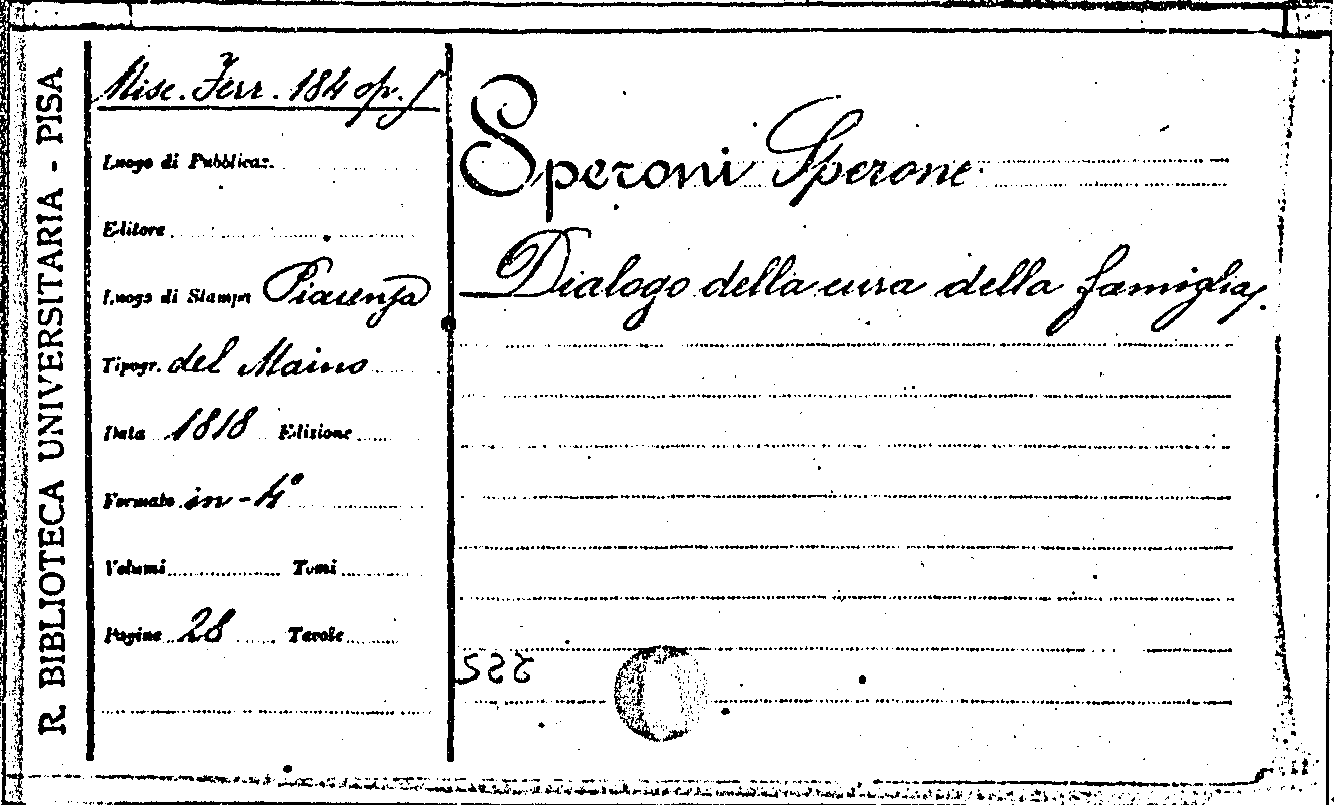 R. BIBLIOTECA UNIVERSITARIA - PISA
Misc. Ferr. 184 op. 5
Luogo di Pubblicaz.
Editore
Luogo di Stampa Piacenza
Tipogr. del Maino
Data 1818 Edizione
Formato in-4°
Volumi Tomi
Pagine 28 Tavole
Speroni Sperone
Dialogo della cura della famiglia.